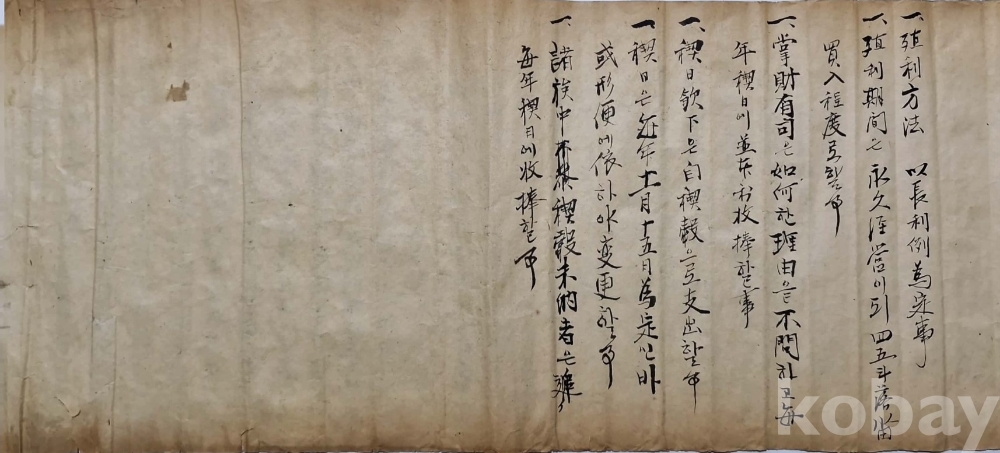 一, 殖利方法 以長利例為定事
一, 殖利期間은 永久経營이되 四五斗落
買入程度로할事
一, 掌財有司은 如何한 理由을 不問하고 每
年稧日에 並本利收捧할事
一, 稧日飮下은 自稧穀으로 支出할事
一, 稧日은 每年 十一月十五日為定인바
或形便에 依하야 変更할事
一, 諸族中 不參稧穀未納者은
每年稧日에 收捧할事
kobay